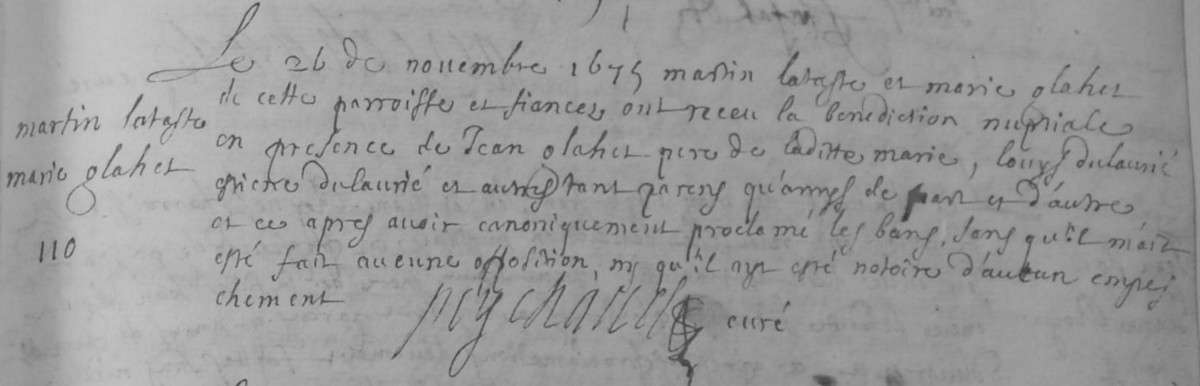 Le 26 de nouembre 1675 martin lataste et marie glahet
de cette parroisse et fiances ont receu la benediction nuptiale
en presence de Jean glahet pere de laditte marie, louys dulaurié
pierre dulaurié et autres tant parens qu'amys de part et d'autre
et ce apres auoir canoniquement proclamé les bans, sans qu'il m'ait
esté fait aucune opposition, ny qu'il ayt esté notoire d'aucun empes
chement
curé
martin lataste
marie glahet
110